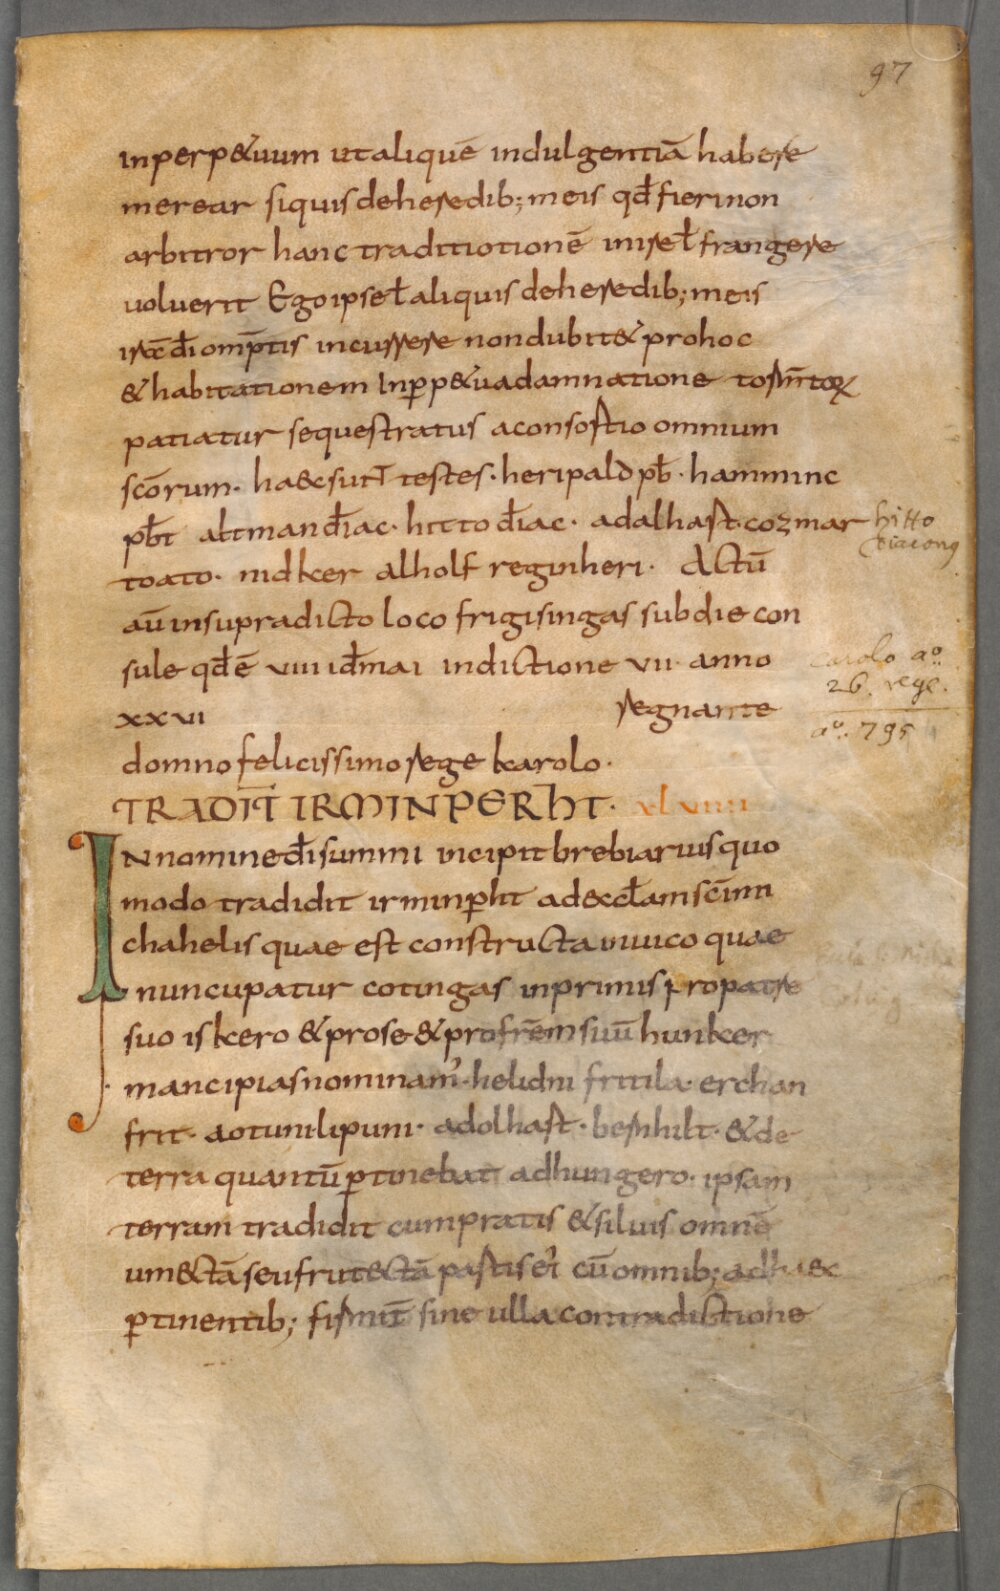 97
inperp&uum utaliquē indulgentiā habere
merear siquis deheredib; meis qđ fieri non
arbitror hanc traditiotionē inire ł frangere
uoluerit Ego ipse ł aliquis deheredib; meis
irā đi omp̄tis incurrere non dubit& pro hoc
& habitationem Inp̱p&ua damnatione tormtoꝝ
patiatur sequestratus aconsortio omnium
scōrum · haec sunt testes · heripald pƀ · hamminc
pƀt altman điac · hitto điac · adalhart · cozmar
toato · nidker alholf reginheri · Actū
aū in supradicto loco frigisingas sub die con
sule qđ ē viiii iđ mai indictione vii · anno
xxvi regnante
domno felicissimo rege karolo ·
hitto
diaconꝰ
carolo aº
26. rege.
aº. 795
TRADIT̄ IRMINPERHT · xlviiii
IN nomine đi summi incipit brebiarius quo
modo tradidit irminp̱ht ad eccłam scī mi
chahelis quae est constructa in uico quae
nuncupatur cotingas inprimis pro patre
suo iskero & pro se & pro frēm suū hunker
mancipias nominam̕ · helidni fritila · erchan
frit · aotuni lipuni · adolhart · bernhilt · & de
terra quantū p̱tinebat ad hungero · ipsam
terram tradidit cum pratis & siluis omnē
um&tā seu frutectā pastiseri cū omnib; ad haec
p̱tinentib; firmit̄ sine ulla contradictione